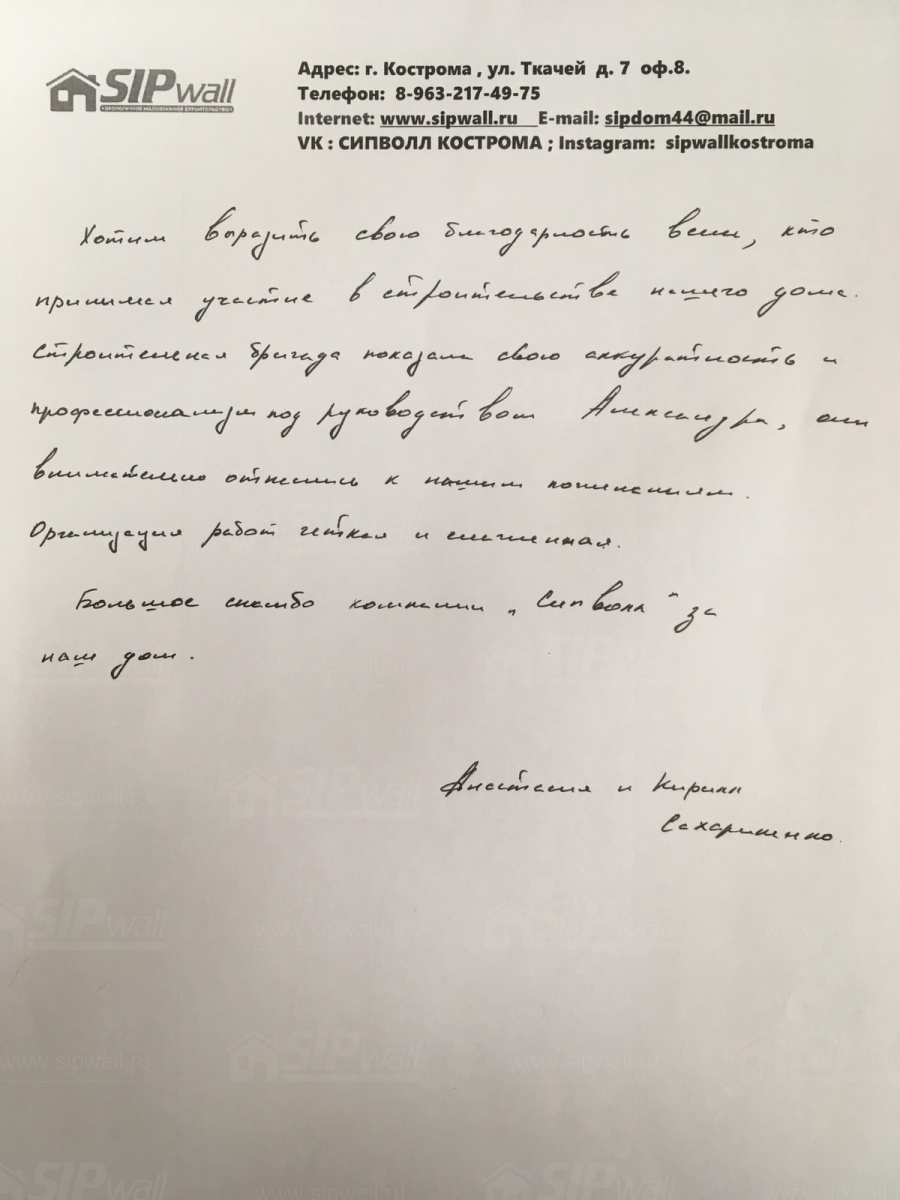 SIPwall
ЭКОЛОГИЧНОЕ МАЛОЭТАЖНОЕ СТРОИТЕЛЬСТВО
Адрес: г. Кострома , ул. Ткачей д. 7 оф.8.
Телефон: 8-963-217-49-75
Internet: www.sipwall.ru E-mail: sipdom44@mail.ru
VK : СИПВОЛЛ КОСТРОМА ; Instagram: sipwallkostroma
Хотим выразить свою благодарность всем, кто
принимал участие в строительстве нашего дома.
Строительная бригада показали свою аккуратность и
профессионализм под руководством Александра, они
внимательно отнеслись к нашим пожеланиям.
Организация работ четкая и слаженная.
Большое спасибо компании „Сипволл" за
наш дом.
Анастасия и Кирилл
www.sipwall.ru
SIPwall
SIPwall
www.sipwall.ru
SIPwall
www.sipwall.ru
SIPwall
www.sipwall.ru
SIPwall
www.sipwall.ru
SIPwall